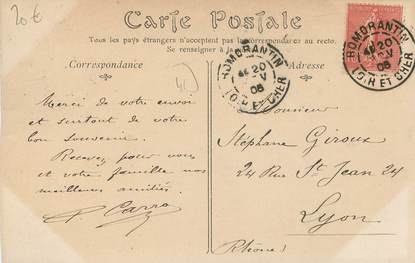 20€
Carte Postale
Tous les pays étrangers n'acceptent pas la correspondance au recto.
Se renseigner à la
Correspondance
Adresse
ROMORANTIN
20
06
LOIR ET CHER
ROMORANTIN
20
06
LOIR ET CHER
41
Merci de votre envoi
et surtout de votre
bon souvenir.
Recevez pour vous
et votre famille nos
meilleures amitiés.
P Carra
Monsieur
Stéphane Giroux
24 Rue St Jean 24
Lyon
Rhône